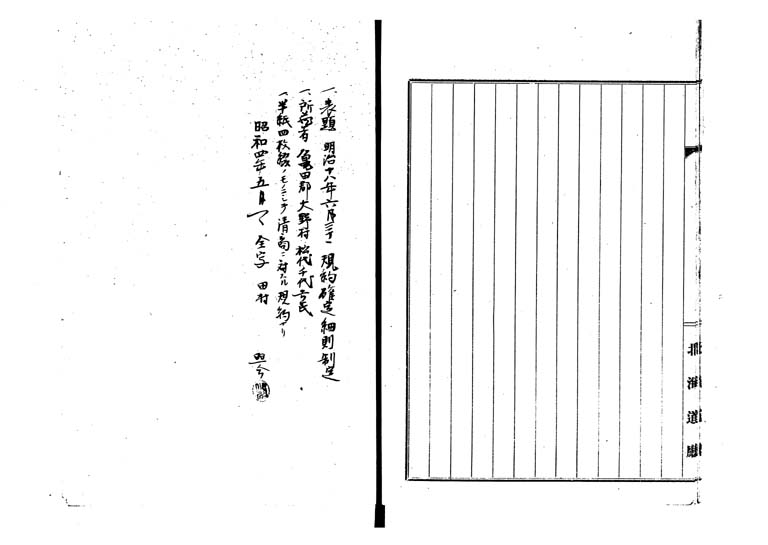 北海道廳
一、表題 明治十八年六月三十一 規約確定細則制定
一、所蔵者 亀田郡大野村 松代千代吉氏
一、半紙四枚綴ノモノニシテ清商ニ対スル規約ナリ
昭和四年五月 全字 田村
照合